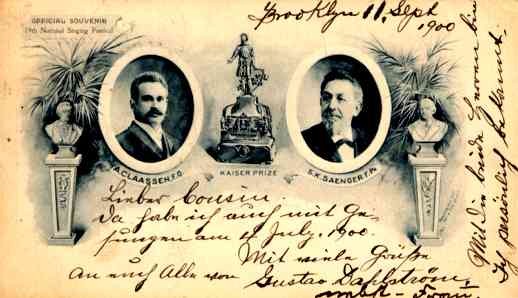 OFFICIAL SOUVENIR
19th National Singing Festival
Brooklyn 11. Sept
1900
A. CLAASSEN, F.D.
KAISER PRIZE
S.K. SAENGER, F.P.
Lieber Cousin.
Da habe ich auch mit Ge-
sungen am 1 July. 1900.
Mit viele Grüße
An euch Alle von Gustav Dahlström,
nebst Frau.
Mit die beide Herren bin
Ich persönlich bekannt.